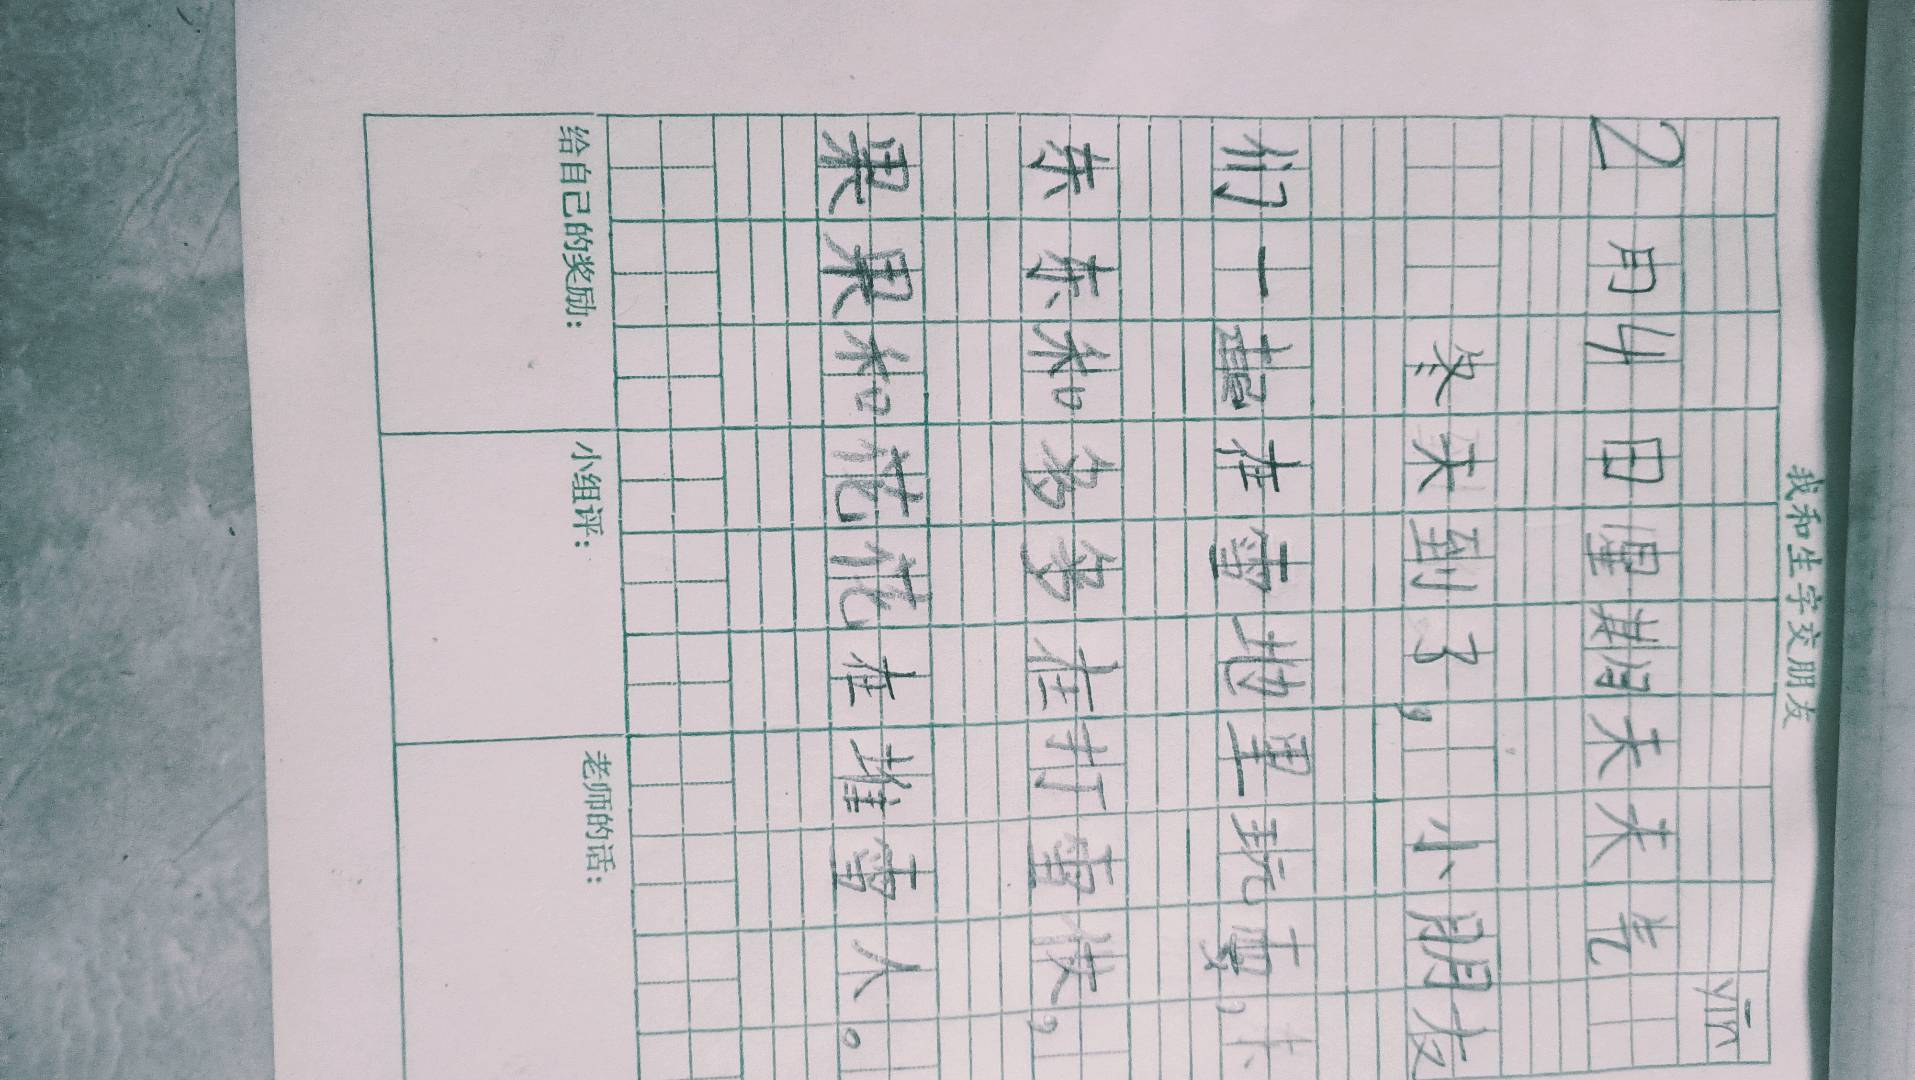 我和生字交朋友
yīn
2月4日星期天天气
冬天到了，小朋友
们一起在雪地里玩耍，
东东和多多在打雪仗，
果果和花花在堆雪人。
给自己的奖励：
小组评：
老师的话：